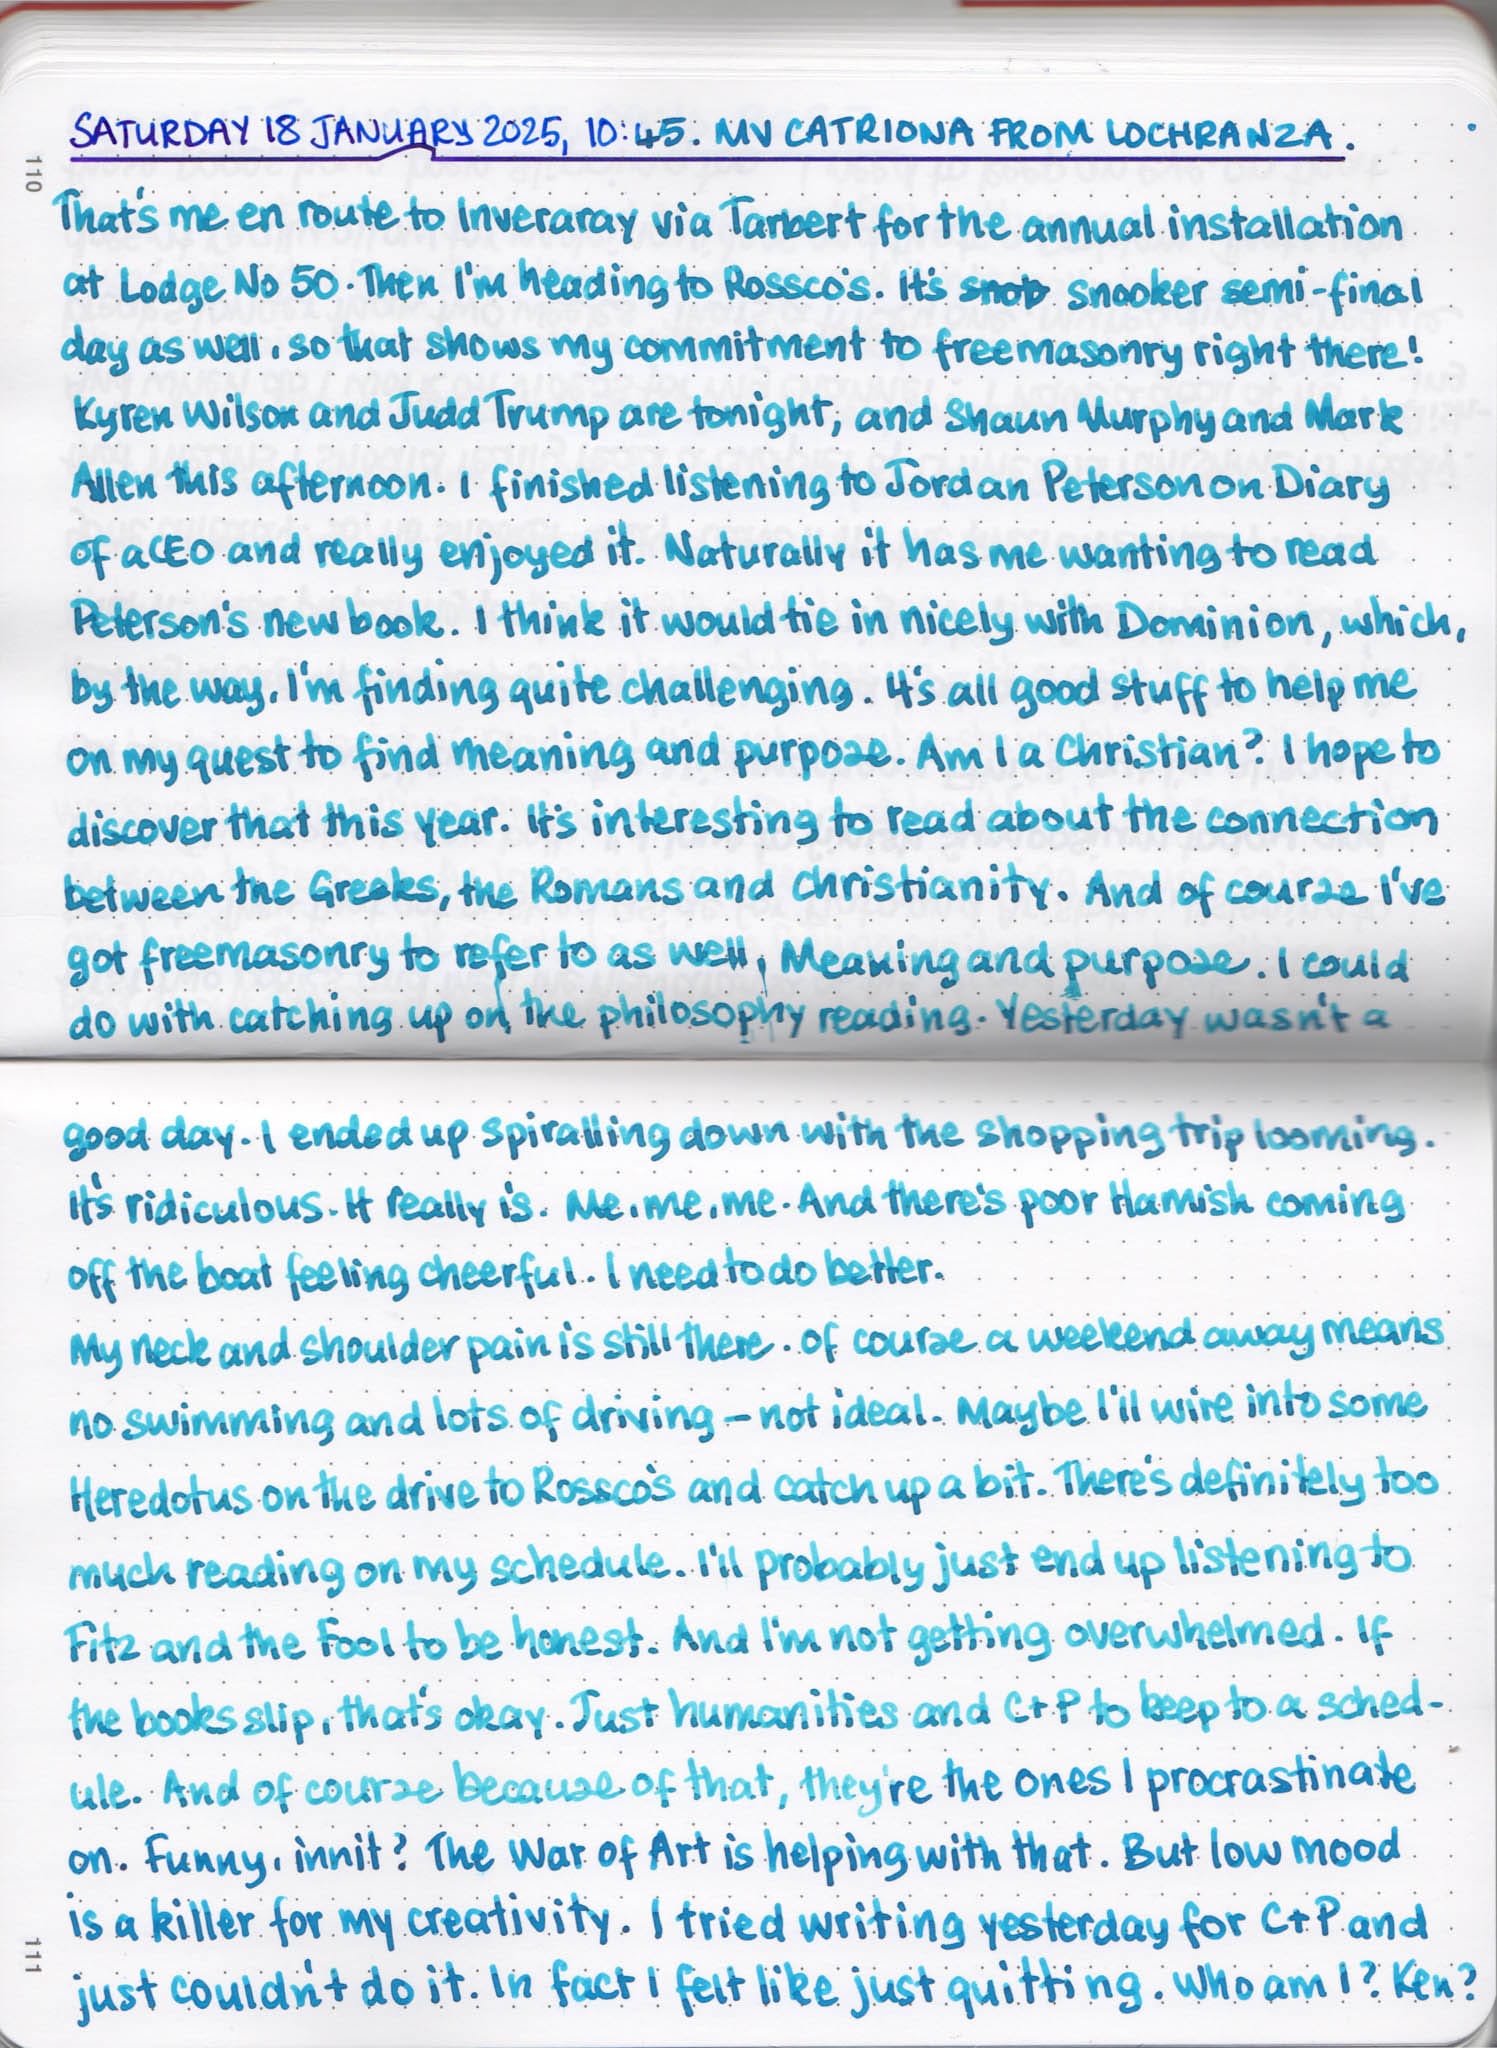 SATURDAY 18 JANUARY 2025, 10:45. MV CATRIONA FROM LOCHRANZA.
110
That's me en route to Inveraray via Tarbert for the annual installation
at Lodge No 50. Then I'm heading to Rossco's. It's snob snooker semi-final
day as well, so that shows my commitment to freemasonry right there!
Kyren Wilson and Judd Trump are tonight, and Shaun Murphy and Mark
Allen this afternoon. I finished listening to Jordan Peterson on Diary
of a CEO and really enjoyed it. Naturally it has me wanting to read
Peterson's new book. I think it would tie in nicely with Dominion, which,
by the way, I'm finding quite challenging. It's all good stuff to help me
on my quest to find meaning and purpose. Am I a Christian? I hope to
discover that this year. It's interesting to read about the connection
between the Greeks, the Romans and Christianity. And of course I've
got freemasonry to refer to as well, Meaning and purpose. I could
do with catching up on the philosophy reading. Yesterday wasn't a
good day. I ended up spiralling down with the shopping trip looming.
It's ridiculous. It really is. Me, me, me. And there's poor Hamish coming
off the boat feeling cheerful. I need to do better.
My neck and shoulder pain is still there. Of course a weekend away means
no swimming and lots of driving – not ideal. Maybe I'll wire into some
Heredotus on the drive to Rossco's and catch up a bit. There's definitely too
much reading on my schedule. I'll probably just end up listening to
Fitz and the Fool to be honest. And I'm not getting overwhelmed. If
the books slip, that's okay. Just humanities and C+P to keep to a sched-
ule. And of course because of that, they're the ones I procrastinate
on. Funny, innit? The War of Art is helping with that. But low mood
is a killer for my creativity. I tried writing yesterday for C+P and
just couldn't do it. In fact I felt like just quitting. Who am I? Ken?
111